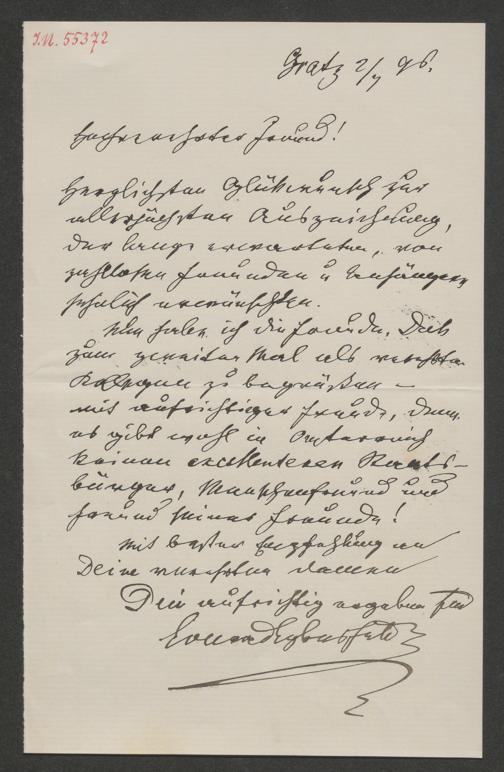 I.N. 55372
Gratz 2/7 96.
Hochverehrter Freund!
Herzlichsten Glückwunsch zur
allerhöchsten Auszeichnung,
der lange erwarteten, von
zahllosen Freunden u Anhängern
sehnlich erwünschten.
Nun habe ich die Freude, Dich
zum zweiten Mal als verehrten
Kollegen zu begrüßen –
mit aufrichtiger Freude, denn
es gibt wohl in Oesterreich
keinen excellenteren Staats-
bürger, Menschenfreund und
Freund seiner Freunde!
Mit bester Empfehlung an
Deine verehrten Damen
Dein aufrichtig ergebener